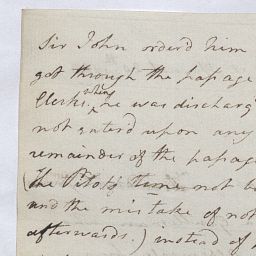 Sir John order'd him
got through the passage
Clerks, when he was discharg
not enter'd upon any
remainder of the passage
(the Pilots time not b
and the mistake of not
afterwards.) instead of